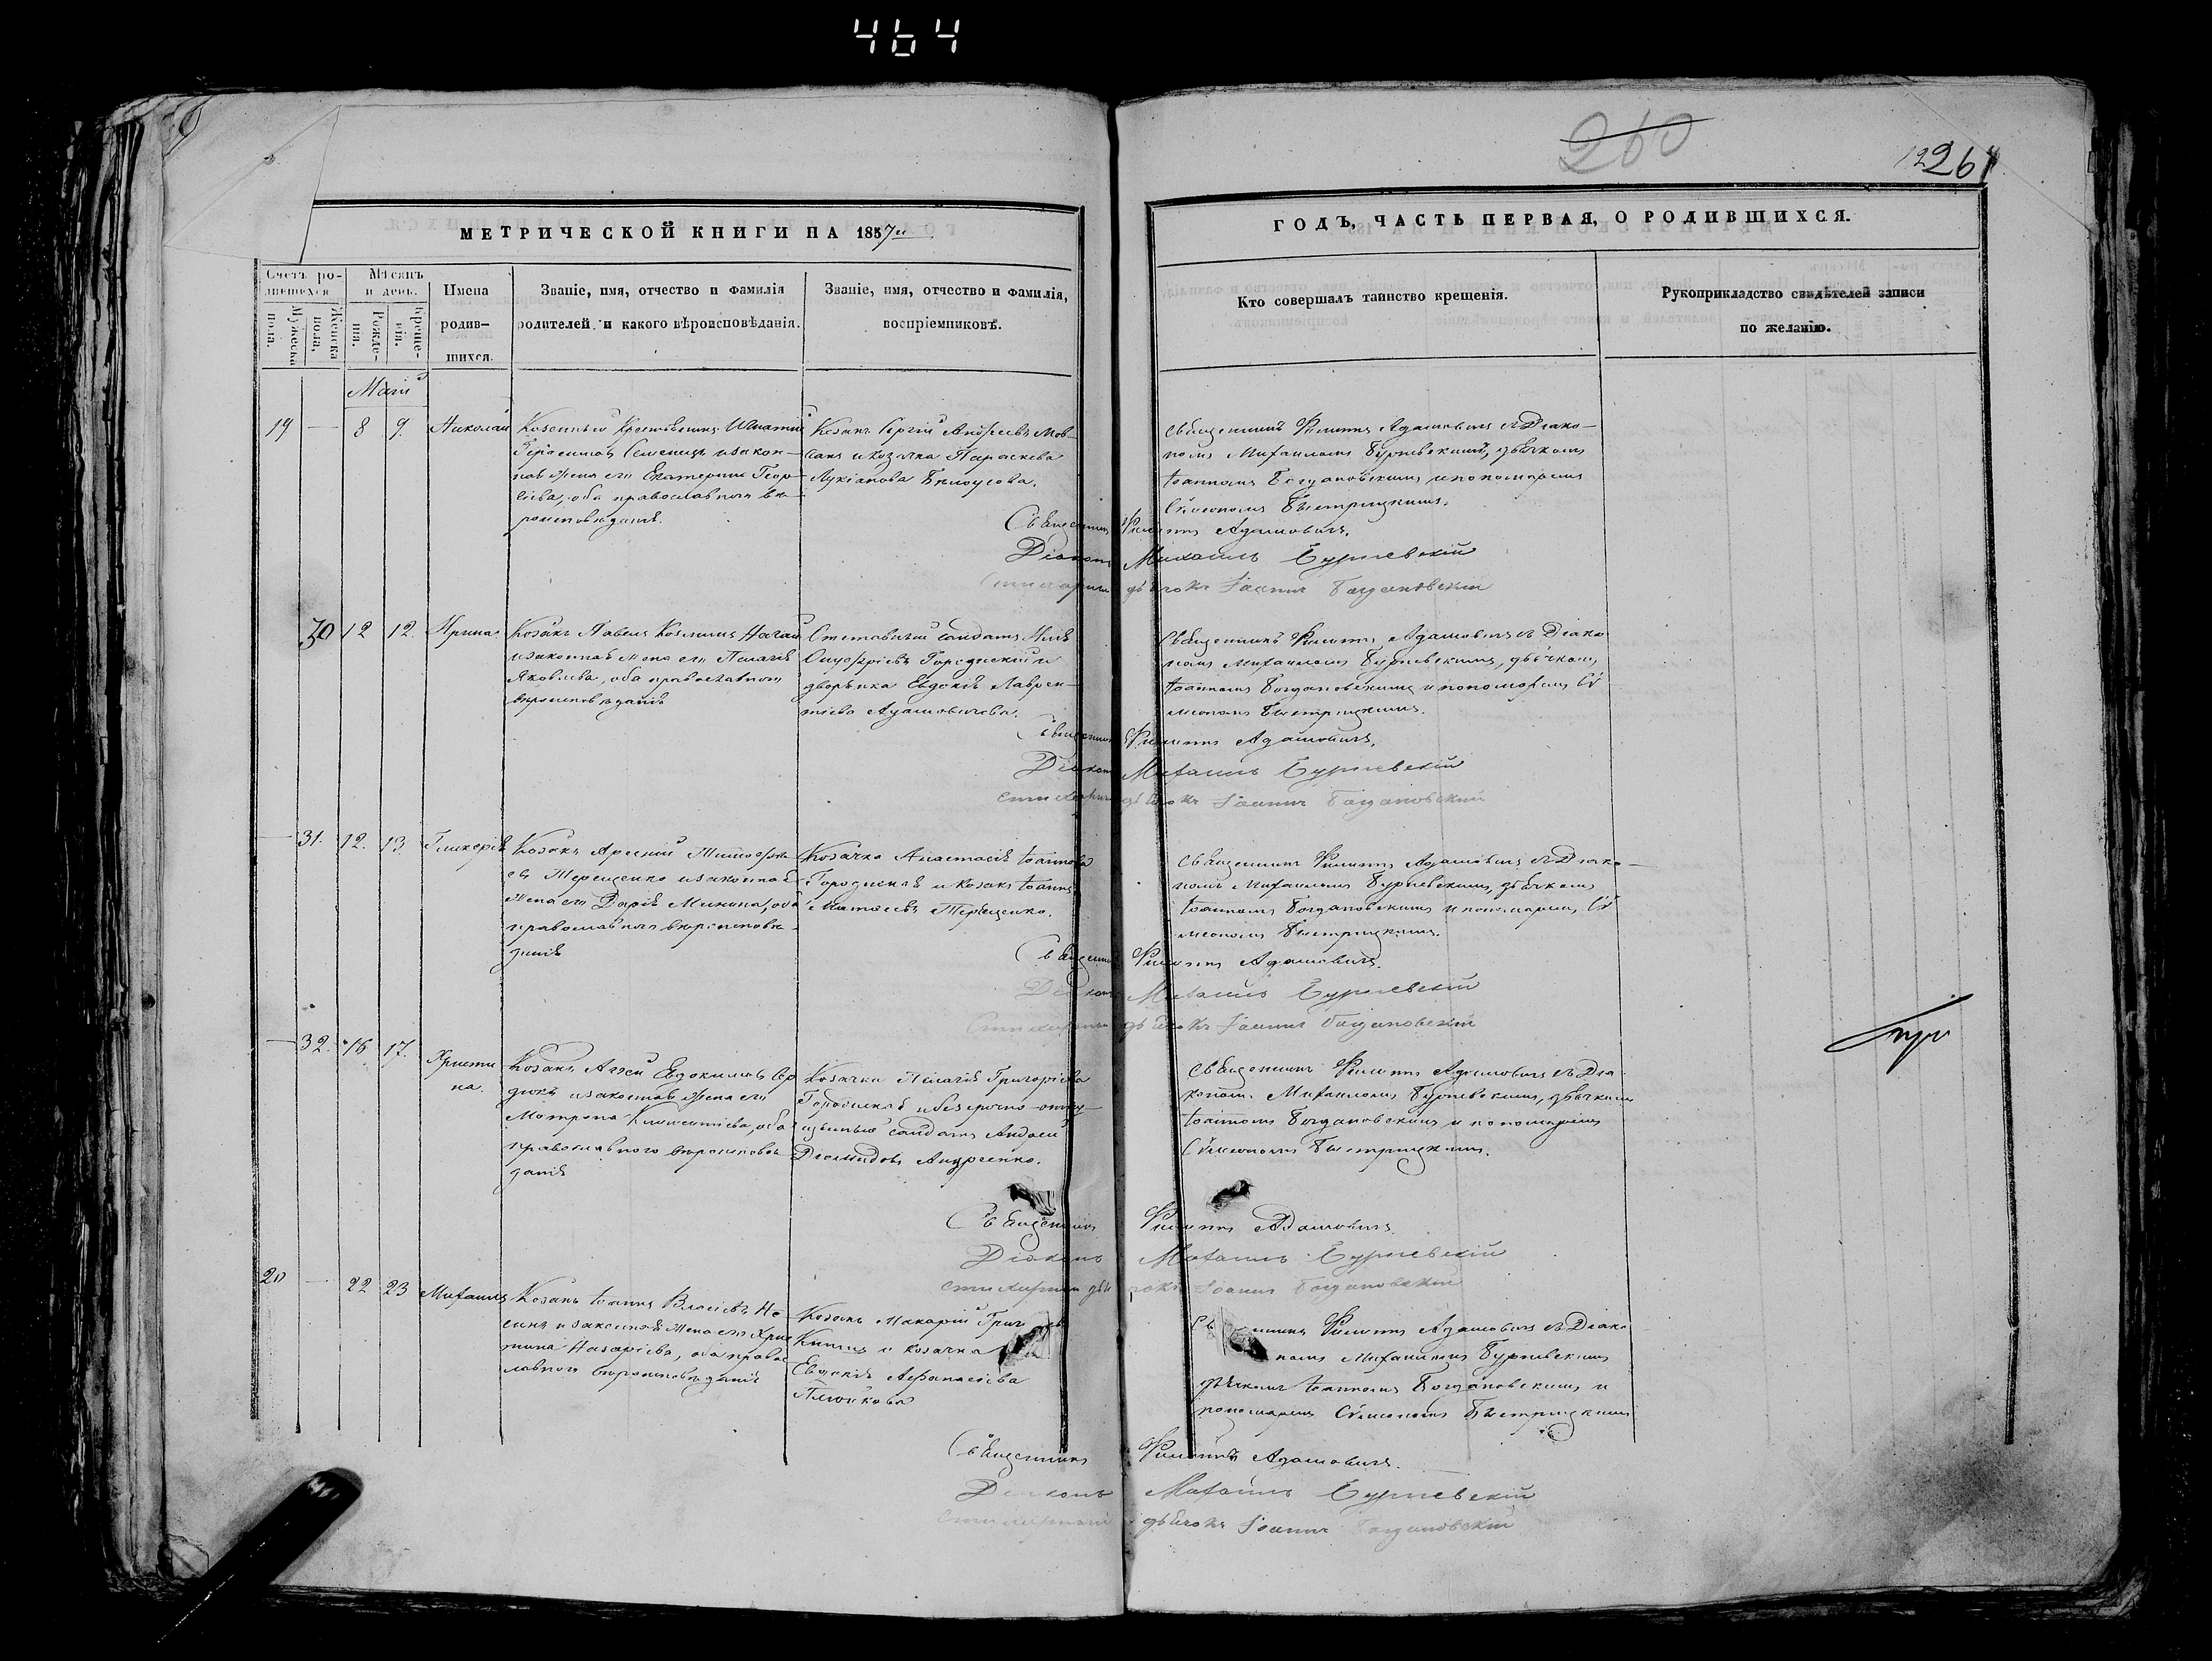 464
260
122
261
МЕТРИЧЕСКОЙ КНИГИ НА 1857й
ГОДЪ, ЧАСТЬ ПЕРВАЯ, О РОДИВШИХСЯ.
Счетъ ро-
дившихся
Мужеска
пола.
Женска
пола,
Мѣсяцъ
и день.
Рожде-
нія.
Креще-
нія.
Имена
родив-
шихся.
Званіе, имя, отчество и фамилія
родителей и какого вѣроисповѣданія.
Званіе, имя, отчество и фамилія,
воспріемниковъ.
Кто совершалъ таинство крещенія.
Рукоприкладство свидѣтелей записи
по желанію.
Маій
19 — 8 9. Николай
Козенный Крестьянинъ Игнатій
Герасимовъ и закон-
ная жена его Екатерина Геор-
гіева, оба православнаго вѣ-
роисповѣданія.
Козакъ Сергій Андреевъ Мов-
чанъ и козачка Параскева
Лукіанова Бѣлоусова.
Священникъ Филиппъ Адамовичъ съ Діако-
номъ Михаиломъ Бурчевскимъ, дьячкомъ
Іоанномъ Богдановскимъ и пономаремъ
Сѵмеономъ Быстрицкимъ.
Священникъ Филиппъ Адамовичъ.
Діаконъ Михаилъ Бурчевскій
Стихарный дьячокъ Іоаннъ Богдановскій
30 12 12. Ирина
Козакъ Павелъ Козминъ
и законная жена его Пелагія
Яковлева, оба православнаго
вѣроисповѣданія
Отставный солдатъ
Онуфріевъ Городискій и
дворянка Евдокія Лаврен-
тіева Адамовичева.
Священникъ Филиппъ Адамовичъ съ Діако-
номъ Михаиломъ Бурчевскимъ, дьячкомъ
Іоанномъ Богдановскимъ и пономаремъ Сѵ-
меономъ Быстрицкимъ.
Священникъ Филиппъ Адамовичъ.
Діаконъ Михаилъ Бурчевскій
Стихарный дьячокъ Іоаннъ Богдановскій
— 31. 12. 13. Гликерія
Козакъ Арсеній Тимофѣ-
евъ Терещенко и законная
жена его Дарія Минина, оба
православнаго вѣроисповѣ-
данія
Козачка Анастасія Іоаннова
Городиская и козакъ Іоаннъ
Матѳіевъ Терещенко.
Священникъ Филиппъ Адамовичъ съ Діако-
номъ Михаиломъ Бурчевскимъ, дьячкомъ
Іоанномъ Богдановскимъ и пономаремъ Сѵ-
меономъ Быстрицкимъ.
Священникъ Филиппъ Адамовичъ.
Діаконъ Михаилъ Бурчевскій
Стихарный дьячокъ Іоаннъ Богдановскій
— 32. 16 17. Христи
на.
Козакъ Аггей Евдокимовъ Сер
дюкъ и законная жена его
Матрона Климентіева, оба
православнаго вѣроисповѣ
данія
Козачка Пелагія Григоріева
Городиская и безсрочно-отпу-
щенный солдатъ Андрей
Діомидовъ Андреенко.
Священникъ Филиппъ Адамовичъ съ Діа
кономъ Михаиломъ Бурчевскимъ, дьячкомъ
Іоанномъ Богдановскимъ и пономаремъ
Сѵмеономъ Быстрицкимъ.
Священникъ Филиппъ Адамовичъ.
Діаконъ Михаилъ Бурчевскій
Стихарный дьячокъ Іоаннъ Богдановскій
20 — 22 23 Михаилъ
Козакъ Іоаннъ Власіевъ Но
сикъ и законная жена его Хрис
тина Назаріева, оба правос
лавнаго вѣроисповѣданія
Козакъ Макарій
и козачка
Евдокія Аѳанасіева
Священникъ Филиппъ Адамовичъ съ Діако
номъ Михаиломъ Бурчевскимъ
дьячкомъ Іоанномъ Богдановскимъ и
пономаремъ Сѵмеономъ Быстрицкимъ
Священникъ Филиппъ Адамовичъ.
Діаконъ Михаилъ Бурчевскій
Стихарный дьячокъ Іоаннъ Богдановскій